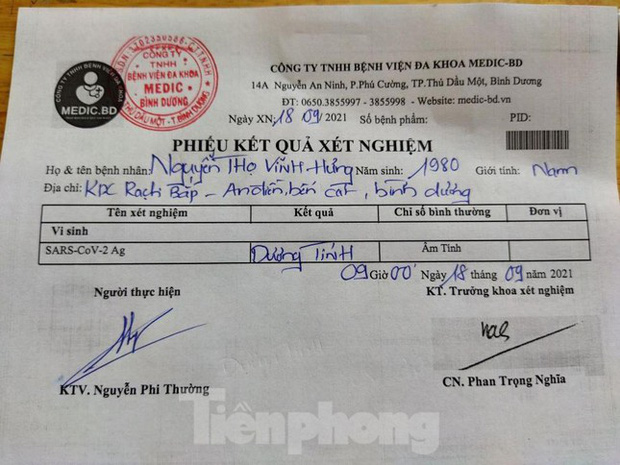 CÔNG TY TNHH BỆNH VIỆN ĐA KHOA
MEDIC.BD
CÔNG TY
TNHH
BỆNH VIỆN ĐA KHOA
MEDIC
BÌNH DƯƠNG
THỦ DẦU MỘT - T.BÌNH DƯƠNG
CÔNG TY TNHH BỆNH VIỆN ĐA KHOA MEDIC-BD
14A Nguyễn An Ninh, P.Phú Cường, TP.Thủ Dầu Một, Bình Dương
ĐT: 0650.3855997 - 3855998 - Website: medic-bd.vn
Ngày XN: 18 09/2021 Số bệnh phẩm: PID:
PHIẾU KẾT QUẢ XÉT NGHIỆM
Họ & tên bệnh nhân: Nguyễn Thọ Vĩnh Hưng Năm sinh: 1980 Giới tính: Nam
Địa chỉ: KDC Rạch Bắp - An điền, bến cát, bình dương
Tên xét nghiệm Kết quả Chỉ số bình thường Đơn vị
Vi sinh
SARS-CoV-2 Ag Dương Tính Âm Tính
09 Giờ 00' Ngày 18 tháng 09 năm 2021
Người thực hiện KT. Trưởng khoa xét nghiệm
KTV. Nguyễn Phi Thường CN. Phan Trọng Nghĩa
Tiền phong